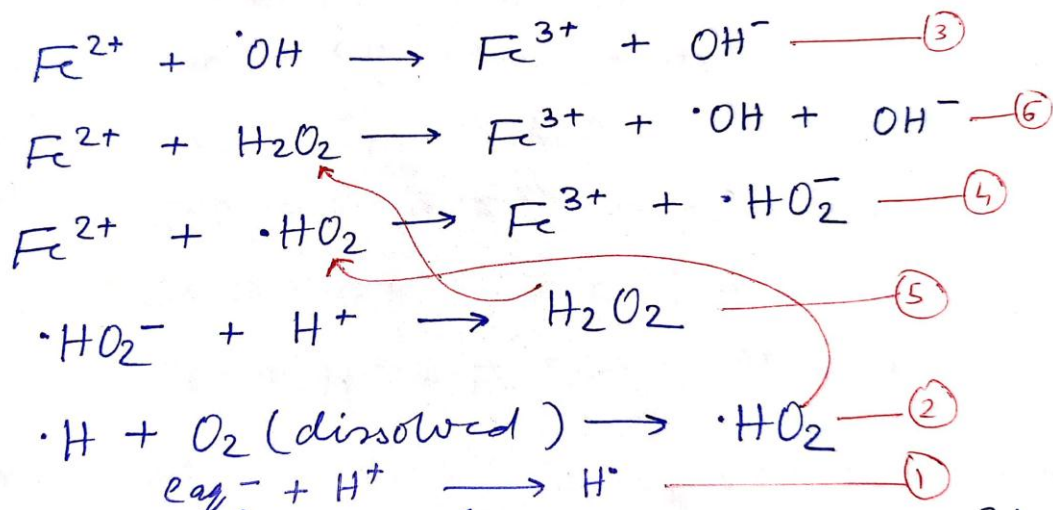 Fe²⁺ + •OH ⟶ Fe³⁺ + OH⁻ — ③
Fe²⁺ + H₂O₂ ⟶ Fe³⁺ + •OH + OH⁻ — ⑥
Fe²⁺ + •HO₂ ⟶ Fe³⁺ + •HO₂⁻ — ④
•HO₂⁻ + H⁺ ⟶ H₂O₂ — ⑤
•H + O₂ (dissolved) ⟶ •HO₂ — ②
eaq⁻ + H⁺ ⟶ H• — ①